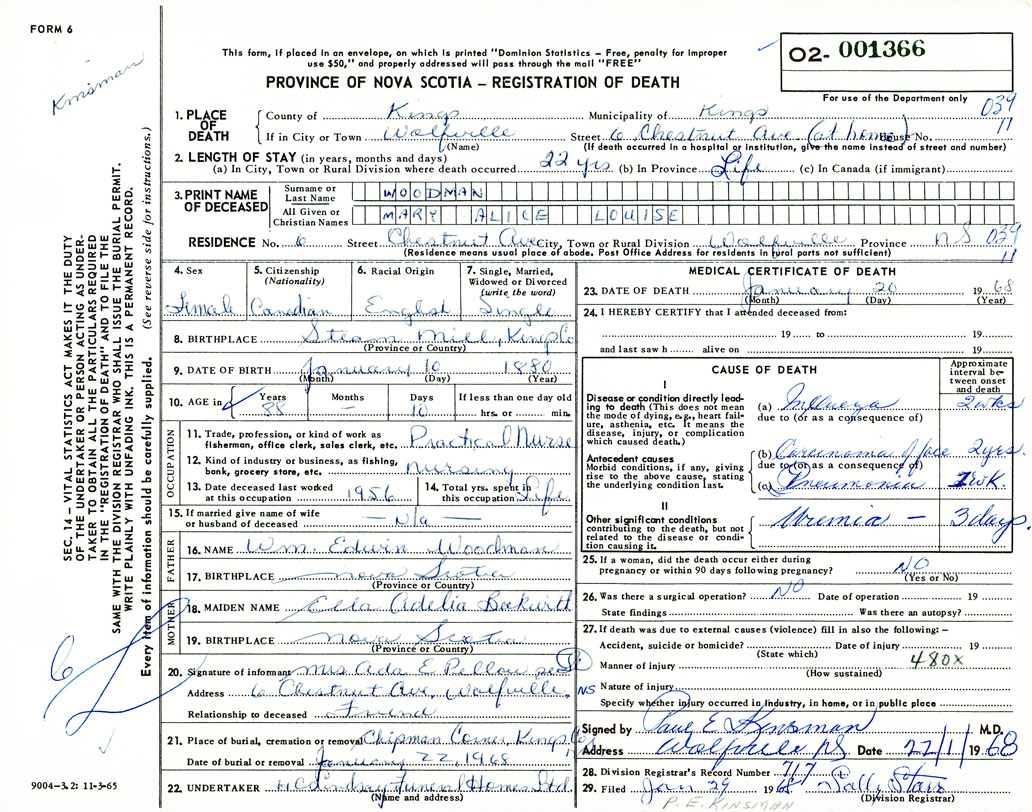 FORM 6
Kinsman
This form, if placed in an envelope, on which is printed "Dominion Statistics – Free, penalty for improper
use $50," and properly addressed will pass through the mail "FREE"
PROVINCE OF NOVA SCOTIA – REGISTRATION OF DEATH
02- 001366
For use of the Department only
034
11
1. PLACE OF DEATH
County of Kings Municipality of Kings
If in City or Town Wolfville Street 6 Chestnut Ave (at home) House No.
(Name) (If death occurred in a hospital or institution, give the name instead of street and number)
2. LENGTH OF STAY (in years, months and days)
(a) In City, Town or Rural Division where death occurred 22 yrs (b) In Province Life (c) In Canada (if immigrant)
3. PRINT NAME OF DECEASED
Surname or Last Name WOODMAN
All Given or Christian Names MARY ALICE LOUISE
RESIDENCE No. 6 Street Chestnut Ave City, Town or Rural Division Wolfville Province NS 034
11
(Residence means usual place of abode. Post Office Address for residents in rural parts not sufficient)
4. Sex
Female
5. Citizenship
(Nationality)
Canadian
6. Racial Origin
English
7. Single, Married,
Widowed or Divorced
(write the word)
Single
8. BIRTHPLACE Steam Mill, Kings Co
(Province or Country)
9. DATE OF BIRTH January 10 1880
(Month) (Day) (Year)
10. AGE in Years Months Days If less than one day old
88 – 10 hrs. or min.
OCCUPATION
11. Trade, profession, or kind of work as
fisherman, office clerk, sales clerk, etc. Practical Nurse
12. Kind of industry or business, as fishing,
bank, grocery store, etc. Nursing
13. Date deceased last worked
at this occupation 1956
14. Total yrs. spent in
this occupation Life
15. If married give name of wife
or husband of deceased — N/a —
FATHER
16. NAME Wm. Edwin Woodman
17. BIRTHPLACE Nova Scotia
(Province or Country)
MOTHER
18. MAIDEN NAME Ella Adelia Beckwith
19. BIRTHPLACE Nova Scotia
(Province or Country)
20. Signature of informant Mrs Ada E Pellow
Address 6 Chestnut Ave, Wolfville, NS
Relationship to deceased Friend
21. Place of burial, cremation or removal Chipman Corner, Kings Co
Date of burial or removal January 22, 1968
22. UNDERTAKER Lindsay Funeral Homes Ltd.
(Name and address)
MEDICAL CERTIFICATE OF DEATH
23. DATE OF DEATH January 20 1968
(Month) (Day) (Year)
24. I HEREBY CERTIFY that I attended deceased from:
19 to 19
and last saw h alive on 19
CAUSE OF DEATH
Approximate
interval be-
tween onset
and death
I
Disease or condition directly lead-
ing to death (This does not mean
the mode of dying, e.g., heart fail-
ure, asthenia, etc. It means the
disease, injury, or complication
which caused death.)
(a) Influenza 2 wks
due to (or as a consequence of)
Antecedent causes
Morbid conditions, if any, giving
rise to the above cause, stating
the underlying condition last.
(b) Carcinoma of face 2 yrs.
due to (or as a consequence of)
(c) Pneumonia 1 wk.
II
Other significant conditions
contributing to the death, but not
related to the disease or condi-
tion causing it.
Uremia – 3 days.
25. If a woman, did the death occur either during
pregnancy or within 90 days following pregnancy? NO
(Yes or No)
26. Was there a surgical operation? NO Date of operation 19
State findings Was there an autopsy?
27. If death was due to external causes (violence) fill in also the following: –
Accident, suicide or homicide? Date of injury 19
(State which)
480x
Manner of injury
(How sustained)
Nature of injury
Specify whether injury occurred in Industry, in home, or in public place
Signed by Paul E Kinsman M.D.
Address Wolfville NS Date 22/1/1968
28. Division Registrar's Record Number 717
29. Filed Jan 29 1968 Sally Starr
(Division Registrar)
P. E. KINSMAN
SEC. 14 – VITAL STATISTICS ACT MAKES IT THE DUTY
OF THE UNDERTAKER OR PERSON ACTING AS UNDER-
TAKER TO OBTAIN ALL THE PARTICULARS REQUIRED
IN THE "REGISTRATION OF DEATH" AND TO FILE THE
SAME WITH THE DIVISION REGISTRAR WHO SHALL ISSUE THE BURIAL PERMIT.
WRITE PLAINLY WITH UNFADING INK. THIS IS A PERMANENT RECORD.
Every item of information should be carefully supplied. (See reverse side for instructions.)
9004-3.2: 11-3-65